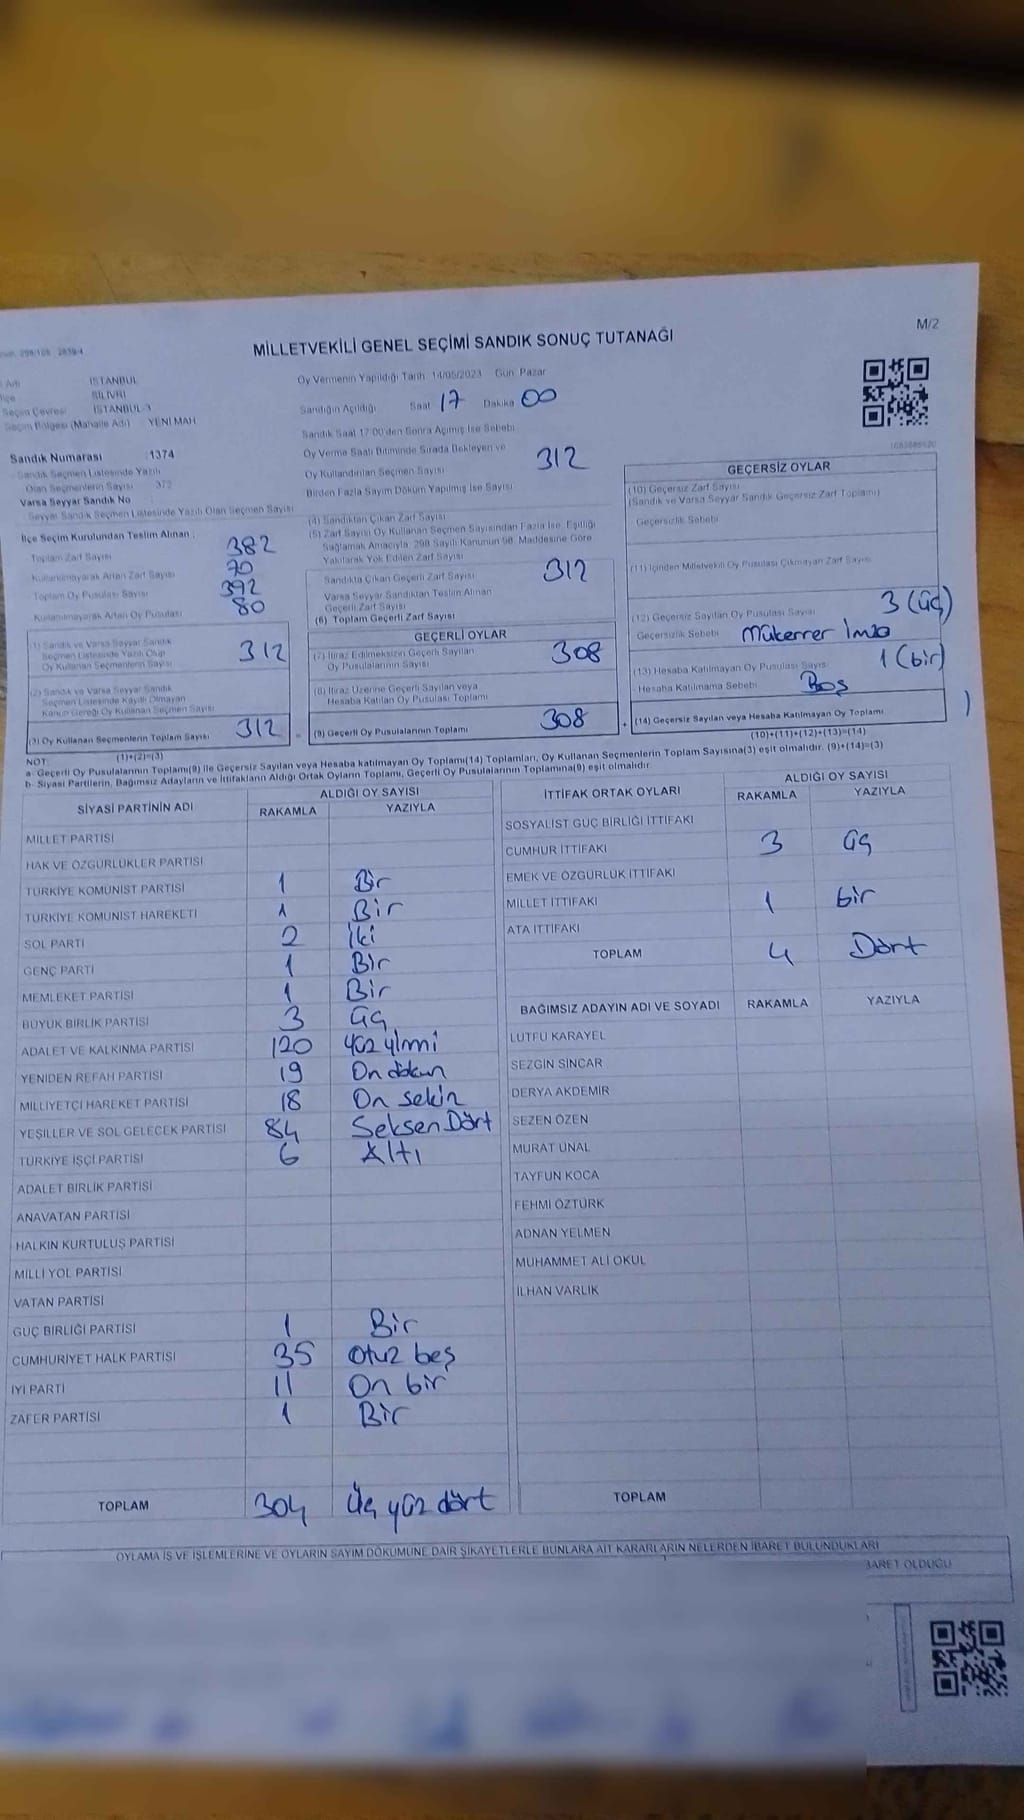 M/2
MİLLETVEKİLİ GENEL SEÇİMİ SANDIK SONUÇ TUTANAĞI
İSTANBUL
SİLİVRİ
Seçim Çevresi İSTANBUL-3
Seçim Bölgesi (Mahalle Adı) YENİ MAH
Sandık Numarası 1374
Sandık Seçmen Listesinde Yazılı
Olan Seçmenlerin Sayısı 372
Varsa Seyyar Sandık No
Seyyar Sandık Seçmen Listesinde Yazılı Olan Seçmen Sayısı
İlçe Seçim Kurulundan Teslim Alınan :
Toplam Zarf Sayısı 382
Kullanılmayarak Artan Zarf Sayısı 70
Toplam Oy Pusulası Sayısı 392
Kullanılmayarak Artan Oy Pusulası 80
(1) Sandık ve Varsa Seyyar Sandık
Seçmen Listesinde Yazılı Olup
Oy Kullanan Seçmenlerin Sayısı 312
(2) Sandık ve Varsa Seyyar Sandık
Seçmen Listesinde Kayıtlı Olmayan
Kanun Gereği Oy Kullanan Seçmen Sayısı
(3) Oy Kullanan Seçmenlerin Toplam Sayısı 312
(1)+(2)=(3)
Oy Vermenin Yapıldığı Tarih 14/05/2023 Gün Pazar
Sandığın Açıldığı Saat 17 Dakika 00
Sandık Saat 17:00'den Sonra Açılmış İse Sebebi
Oy Verme Saati Bitiminde Sırada Bekleyen ve
Oy Kullandırılan Seçmen Sayısı 312
Birden Fazla Sayım Döküm Yapılmış İse Sayısı
(4) Sandıktan Çıkan Zarf Sayısı
(5) Zarf Sayısı Oy Kullanan Seçmen Sayısından Fazla İse, Eşitliği
Sağlamak Amacıyla, 298 Sayılı Kanunun 98. Maddesine Göre
Yakılarak Yok Edilen Zarf Sayısı
Sandıkta Çıkan Geçerli Zarf Sayısı 312
Varsa Seyyar Sandıktan Teslim Alınan
Geçerli Zarf Sayısı
(6) Toplam Geçerli Zarf Sayısı
GEÇERLİ OYLAR
(7) İtiraz Edilmeksizin Geçerli Sayılan
Oy Pusulalarının Sayısı 308
(8) İtiraz Üzerine Geçerli Sayılan veya
Hesaba Katılan Oy Pusulası Toplamı
(9) Geçerli Oy Pusulalarının Toplamı 308
GEÇERSİZ OYLAR
(10) Geçersiz Zarf Sayısı
(Sandık ve Varsa Seyyar Sandık Geçersiz Zarf Toplamı)
Geçersizlik Sebebi
(11) İçinden Milletvekili Oy Pusulası Çıkmayan Zarf Sayısı
(12) Geçersiz Sayılan Oy Pusulası Sayısı 3 (üç)
Geçersizlik Sebebi Mükerrer İmza
(13) Hesaba Katılmayan Oy Pusulası Sayısı 1 (bir)
Hesaba Katılmama Sebebi Boş
(14) Geçersiz Sayılan veya Hesaba Katılmayan Oy Toplamı
(10)+(11)+(12)+(13)=(14)
NOT:
a- Geçerli Oy Pusulalarının Toplamı(9) ile Geçersiz Sayılan veya Hesaba katılmayan Oy Toplamı(14) Toplamları, Oy Kullanan Seçmenlerin Toplam Sayısına(3) eşit olmalıdır. (9)+(14)=(3)
b- Siyasi Partilerin, Bağımsız Adayların ve İttifakların Aldığı Ortak Oyların Toplamı, Geçerli Oy Pusulalarının Toplamına(9) eşit olmalıdır.
SİYASİ PARTİNİN ADI ALDIĞI OY SAYISI
RAKAMLA YAZIYLA
MİLLET PARTİSİ
HAK VE ÖZGÜRLÜKLER PARTİSİ
TÜRKİYE KOMÜNİST PARTİSİ 1 Bir
TÜRKİYE KOMÜNİST HAREKETİ 1 Bir
SOL PARTİ 2 İki
GENÇ PARTİ 1 Bir
MEMLEKET PARTİSİ 1 Bir
BÜYÜK BİRLİK PARTİSİ 3 üç
ADALET VE KALKINMA PARTİSİ 120 yüz yirmi
YENİDEN REFAH PARTİSİ 19 On dokuz
MİLLİYETÇİ HAREKET PARTİSİ 18 On sekiz
YEŞİLLER VE SOL GELECEK PARTİSİ 84 Seksen Dört
TÜRKİYE İŞÇİ PARTİSİ 6 Altı
ADALET BİRLİK PARTİSİ
ANAVATAN PARTİSİ
HALKIN KURTULUŞ PARTİSİ
MİLLİ YOL PARTİSİ
VATAN PARTİSİ
GÜÇ BİRLİĞİ PARTİSİ 1 Bir
CUMHURİYET HALK PARTİSİ 35 Otuz beş
İYİ PARTİ 11 On bir
ZAFER PARTİSİ 1 Bir
TOPLAM 304 Üç yüz dört
İTTİFAK ORTAK OYLARI ALDIĞI OY SAYISI
RAKAMLA YAZIYLA
SOSYALİST GÜÇ BİRLİĞİ İTTİFAKI
CUMHUR İTTİFAKI 3 üç
EMEK VE ÖZGÜRLÜK İTTİFAKI
MİLLET İTTİFAKI 1 bir
ATA İTTİFAKI
TOPLAM 4 Dört
BAĞIMSIZ ADAYIN ADI VE SOYADI RAKAMLA YAZIYLA
LÜTFÜ KARAYEL
SEZGİN SİNCAR
DERYA AKDEMİR
SEZEN ÖZEN
MURAT ÜNAL
TAYFUN KOCA
FEHMİ ÖZTÜRK
ADNAN YELMEN
MUHAMMET ALİ OKUL
İLHAN VARLIK
TOPLAM
OYLAMA İŞ VE İŞLEMLERİNE VE OYLARIN SAYIM DÖKÜMÜNE DAİR ŞİKAYETLERLE BUNLARA AİT KARARLARIN NELERDEN İBARET BULUNDUKLARI
BARET OLDUĞU